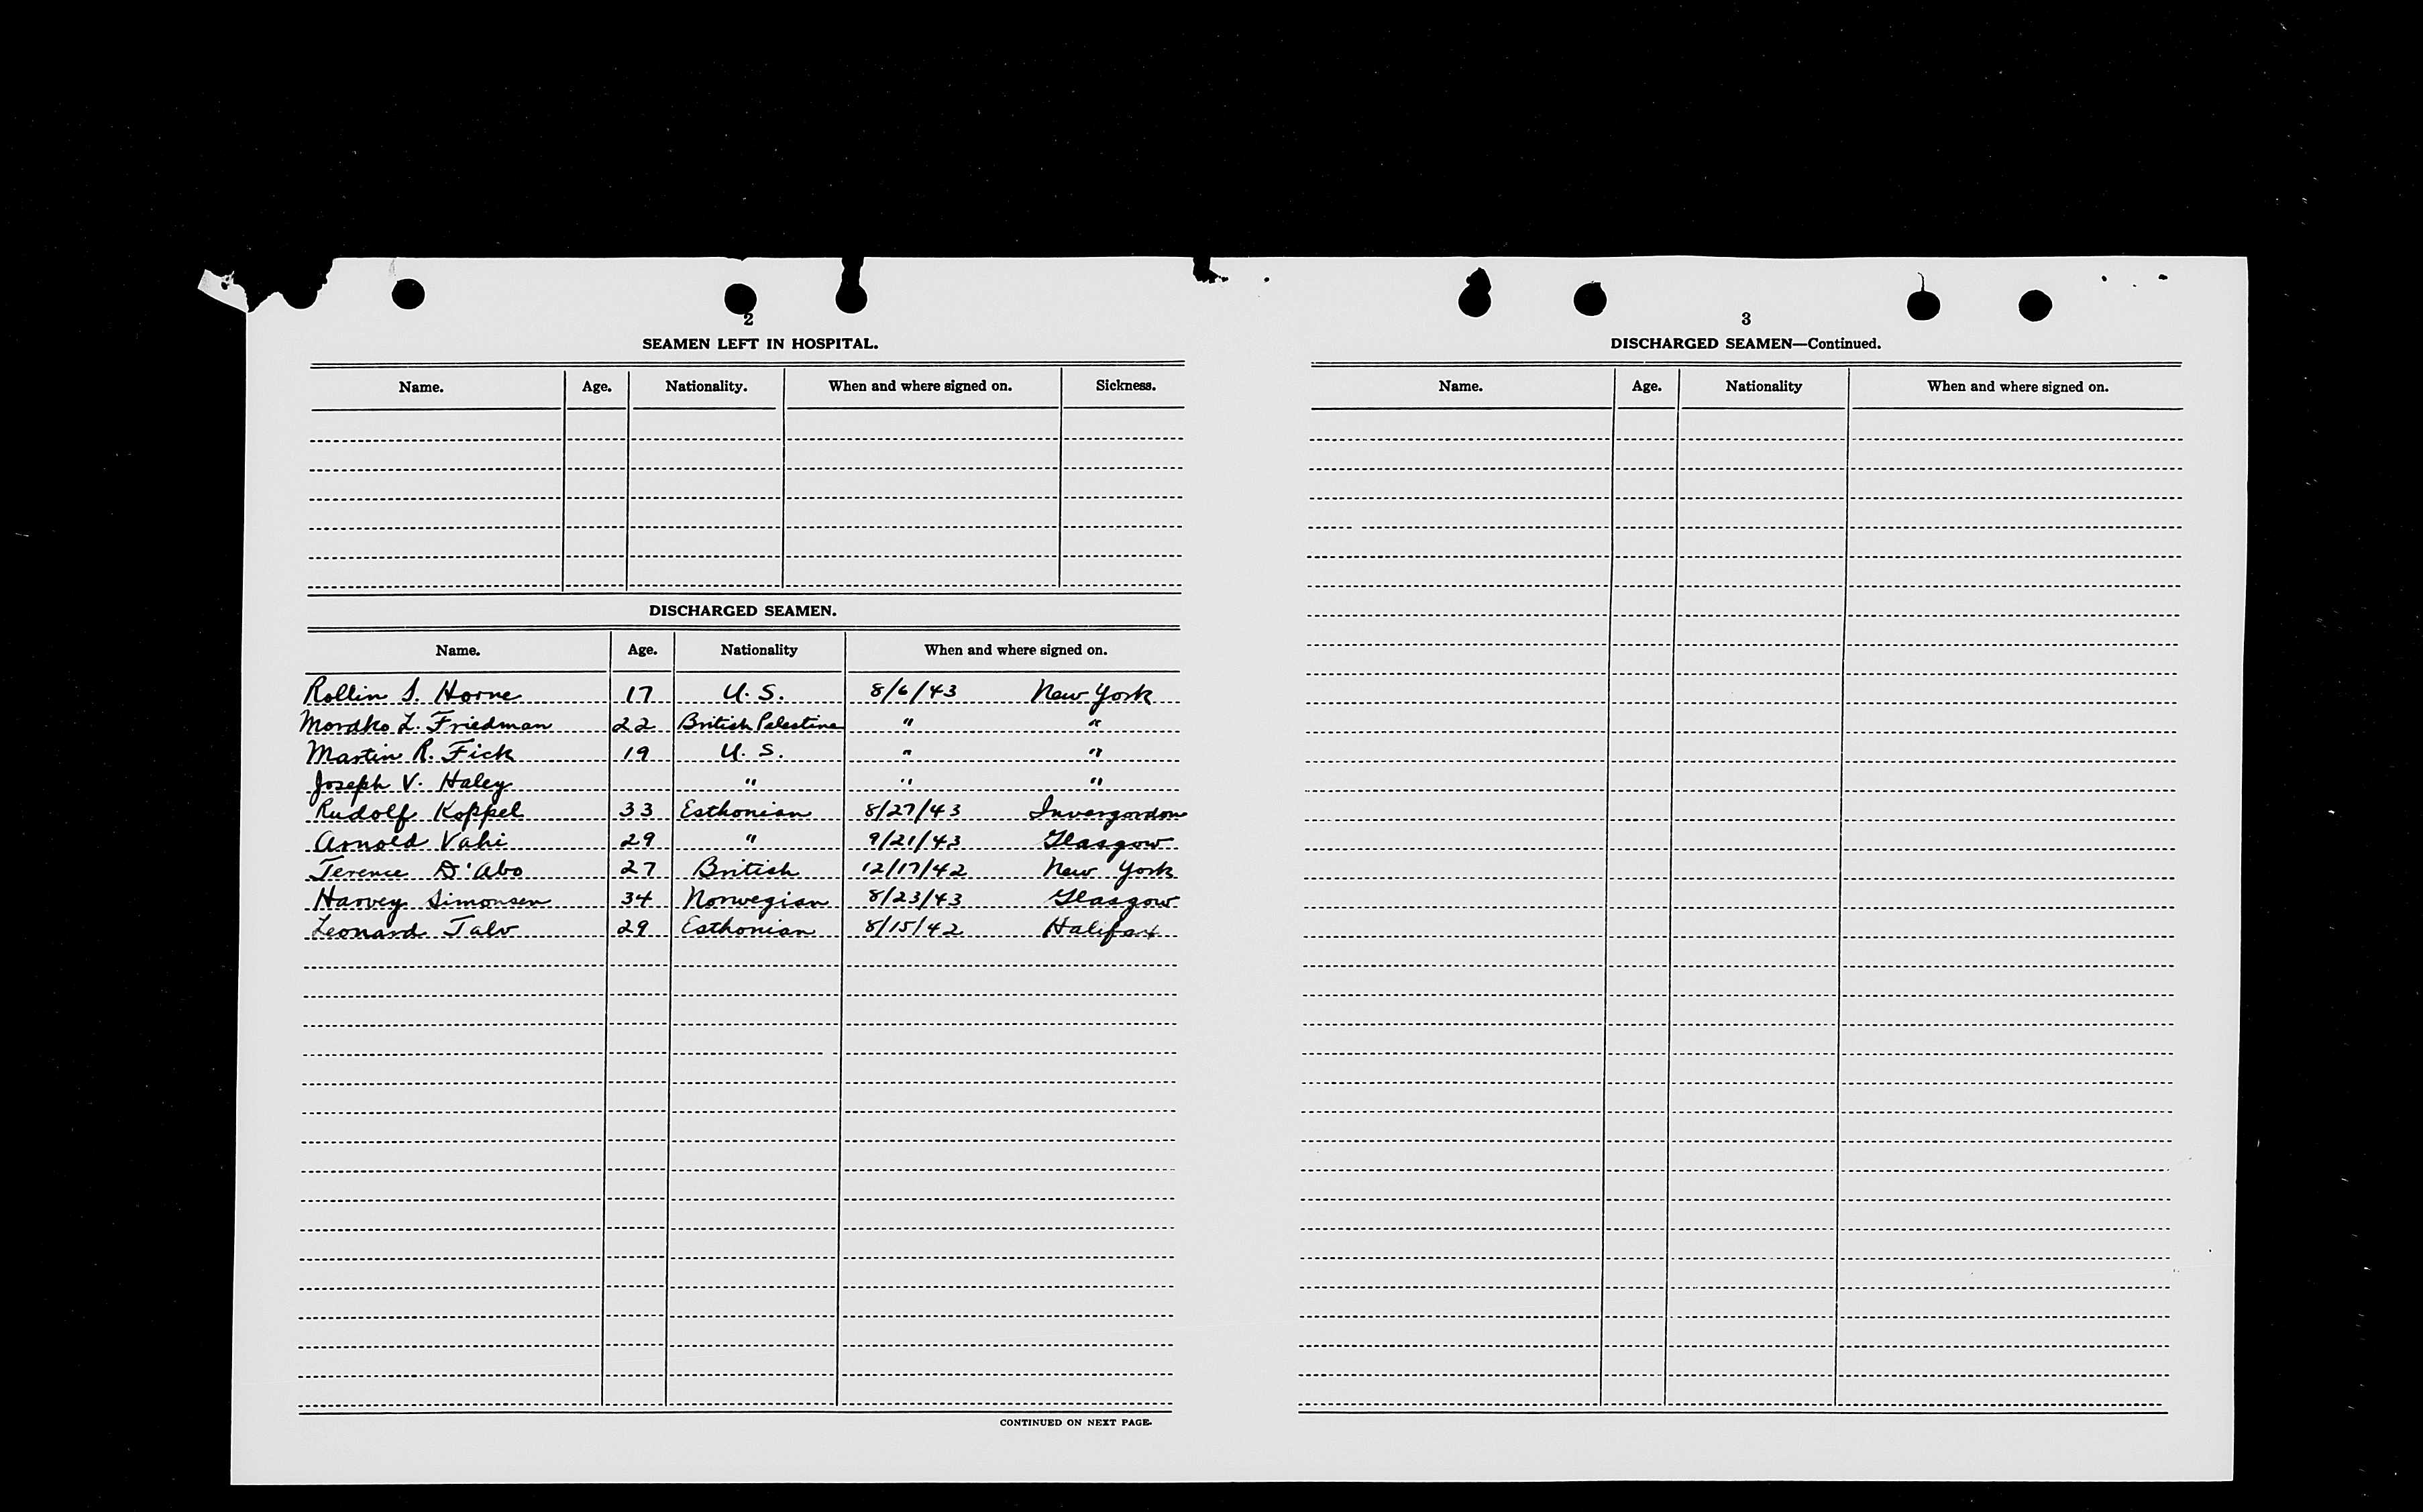 2
SEAMEN LEFT IN HOSPITAL.
Name. Age. Nationality. When and where signed on. Sickness.
DISCHARGED SEAMEN.
Name. Age. Nationality When and where signed on.
Rollin S. Horne 17 U.S. 8/6/43 New York
Mordko L. Friedman 22 British Palestine " "
Martin R. Fick 19 U.S. " "
Joseph V. Haley " " "
Rudolf Koppel 33 Esthonian 8/27/43 Invergordon
Arnold Vahi 29 " 9/21/43 Glasgow
Terence D'Abo 27 British 12/17/42 New York
Harvey Simonsen 34 Norwegian 8/23/43 Glasgow
Leonard Talv 29 Esthonian 8/15/42 Halifax
CONTINUED ON NEXT PAGE.
3
DISCHARGED SEAMEN—Continued.
Name. Age. Nationality When and where signed on.